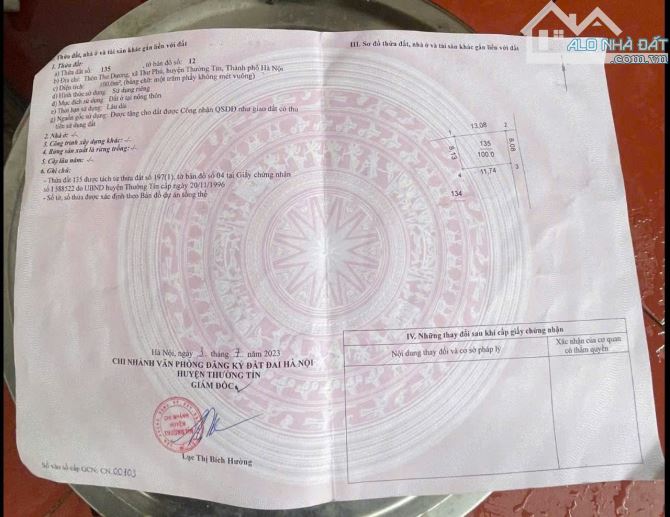 ALO NHÀ ĐẤT
Thửa đất, nhà ở và tài sản khác gắn liền với đất
1. Thửa đất:
a) Thửa đất số: 135 , tờ bản đồ số: 12
b) Địa chỉ: Thôn Thư Dương, xã Thư Phú, huyện Thường Tín, Thành phố Hà Nội
c) Diện tích: 100.0m², (bằng chữ: một trăm phẩy không mét vuông)
d) Hình thức sử dụng: Sử dụng riêng
đ) Mục đích sử dụng: Đất ở tại nông thôn
e) Thời hạn sử dụng: Lâu dài
g) Nguồn gốc sử dụng: Được tặng cho đất được Công nhận QSDĐ như giao đất có thu
tiền sử dụng đất
2. Nhà ở: -/-
3. Công trình xây dựng khác: -/-
4. Rừng sản xuất là rừng trồng: -/-
5. Cây lâu năm: -/-
6. Ghi chú:
- Thửa đất 135 được tách từ thửa đất số 197(1), tờ bản đồ số 04 tại Giấy chứng nhận
số I 588522 do UBND huyện Thường Tín cấp ngày 20/11/1996
- Số tờ, số thửa được xác định theo Bản đồ dự án tổng thể
Hà Nội, ngày 3 tháng 7 năm 2023
CHI NHÁNH VĂN PHÒNG ĐĂNG KÝ ĐẤT ĐAI HÀ NỘI
HUYỆN THƯỜNG TÍN
GIÁM ĐỐC
CHI NHÁNH
HUYỆN
THƯỜNG TÍN
Lục Thị Bích Hường
Số vào sổ cấp GCN: CN 00103
III. Sơ đồ thửa đất, nhà ở và tài sản khác gắn liền với đất
1
13.08
2
8.13
135
100.0
8.08
11.74
3
134
IV. Những thay đổi sau khi cấp giấy chứng nhận
Nội dung thay đổi và cơ sở pháp lý
Xác nhận của cơ quan
có thẩm quyền